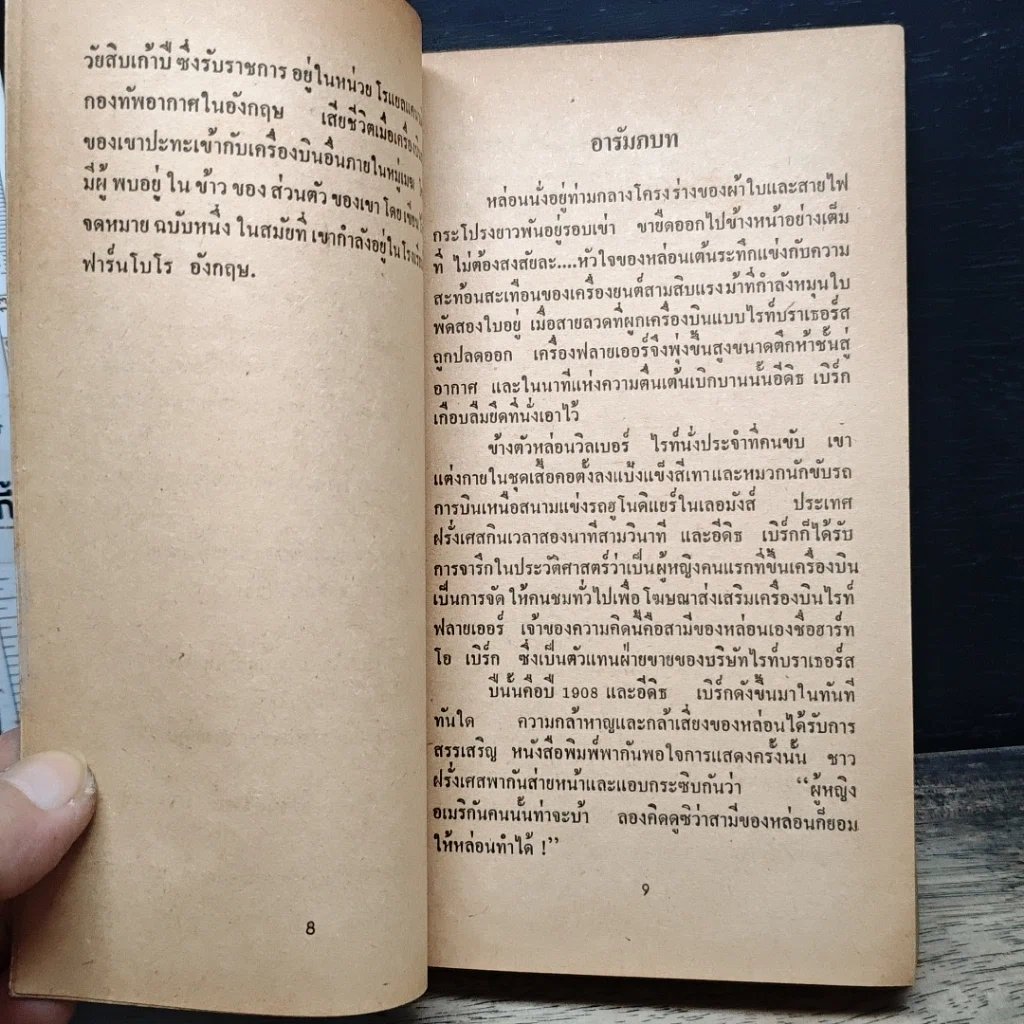 วัยสิบเก้าปี ซึ่งรับราชการ อยู่ในหน่วย โรแยลแคน
กองทัพอากาศในอังกฤษ เสียชีวิตเมื่อเครื่องบิน
ของเขาปะทะเข้ากับเครื่องบินอื่นภายในหมู่เมฆ
มีผู้ พบอยู่ ใน ข้าว ของ ส่วนตัว ของเขา โดย เขียน
จดหมาย ฉบับหนึ่ง ในสมัยที่ เขากำลังอยู่ใน
ฟาร์นโบโร อังกฤษ.
8
อารัมภบท
หล่อนนั่งอยู่ท่ามกลางโครงร่างของผ้าใบและสายไฟ
กระโปรงยาวพันอยู่รอบเข่า ขายืดออกไปข้างหน้าอย่างเต็ม
ที่ ไม่ต้องสงสัยละ....หัวใจของหล่อนเต้นระทึกแข่งกับความ
สะท้อนสะเทือนของเครื่องยนต์สามสิบแรงม้าที่กำลังหมุนใบ
พัดสองใบอยู่ เมื่อสายลวดที่ผูกเครื่องบินแบบไรท์บราเธอร์ส
ถูกปลดออก เครื่องฟลายเออร์จึงพุ่งขึ้นสูงขนาดตึกห้าชั้นสู่
อากาศ และในนาทีแห่งความตื่นเต้นเบิกบานนั้นอีดิธ เบิร์ก
เกือบลืมยึดที่นั่งเอาไว้
ข้างตัวหล่อนวิลเบอร์ ไรท์นั่งประจำที่คนขับ เขา
แต่งกายในชุดเสื้อคอตั้งลงแป้งแข็งสีเทาและหมวกนักขับรถ
การบินเหนือสนามแข่งรถฮูโนดิแยร์ในเลอมังส์ ประเทศ
ฝรั่งเศสกินเวลาสองนาทีสามวินาที และอีดิธ เบิร์กก็ได้รับ
การจารึกในประวัติศาสตร์ว่าเป็นผู้หญิงคนแรกที่ขึ้นเครื่องบิน
เป็นการจัด ให้คนชมทั่วไปเพื่อ โฆษณาส่งเสริมเครื่องบินไรท์
ฟลายเออร์ เจ้าของความคิดนี้คือสามีของหล่อนเองชื่อฮาร์ท
โอ เบิร์ก ซึ่งเป็นตัวแทนฝ่ายขายของบริษัทไรท์บราเธอร์ส
ปีนั้นคือปี 1908 และอีดิธ เบิร์กดังขึ้นมาในทันที
ทันใด ความกล้าหาญและกล้าเสี่ยงของหล่อนได้รับการ
สรรเสริญ หนังสือพิมพ์พากันพอใจการแสดงครั้งนั้น ชาว
ฝรั่งเศสพากันส่ายหน้าและแอบกระซิบกันว่า “ผู้หญิง
อเมริกันคนนั้นท่าจะบ้า ลองคิดดูซิว่าสามีของหล่อนก็ยอม
ให้หล่อนทำได้ !”
9